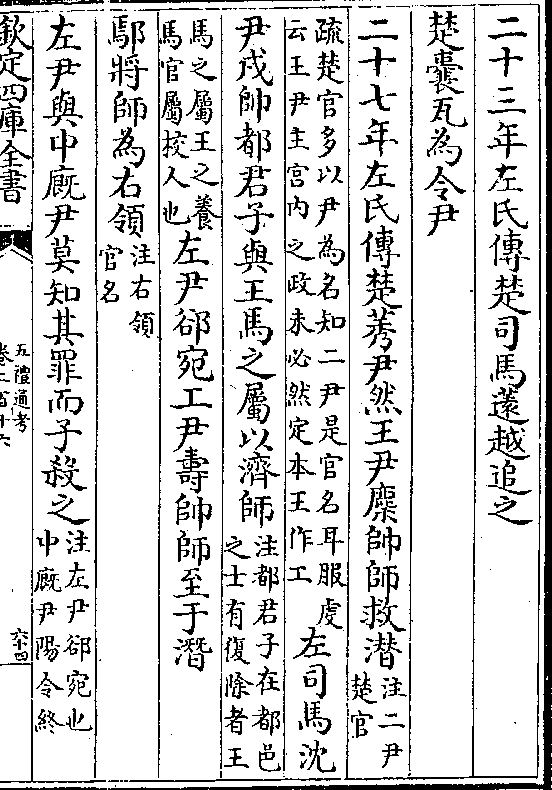 二十三年左氏傳楚司馬薳越追之
楚囊瓦為令尹
二十七年左氏傳楚莠尹然王尹麇帥師救潛注二尹
楚官
疏楚官多以尹為名知二尹是官名耳服虔
云王尹主宫内之政未必然定本王作工
左司馬沈
尹戌帥都君子與王馬之屬以濟師注都君子在都邑
之士有復除者王
馬之屬王之養
馬官屬校人也
左尹郤宛工尹壽帥師至于潛
鄢將師為右領注右領
官名
左尹與中廐尹莫知其罪而子殺之注左尹郤宛也
中廐尹陽令終
欽定四庫全書
五禮通考
卷二百十六
六十四